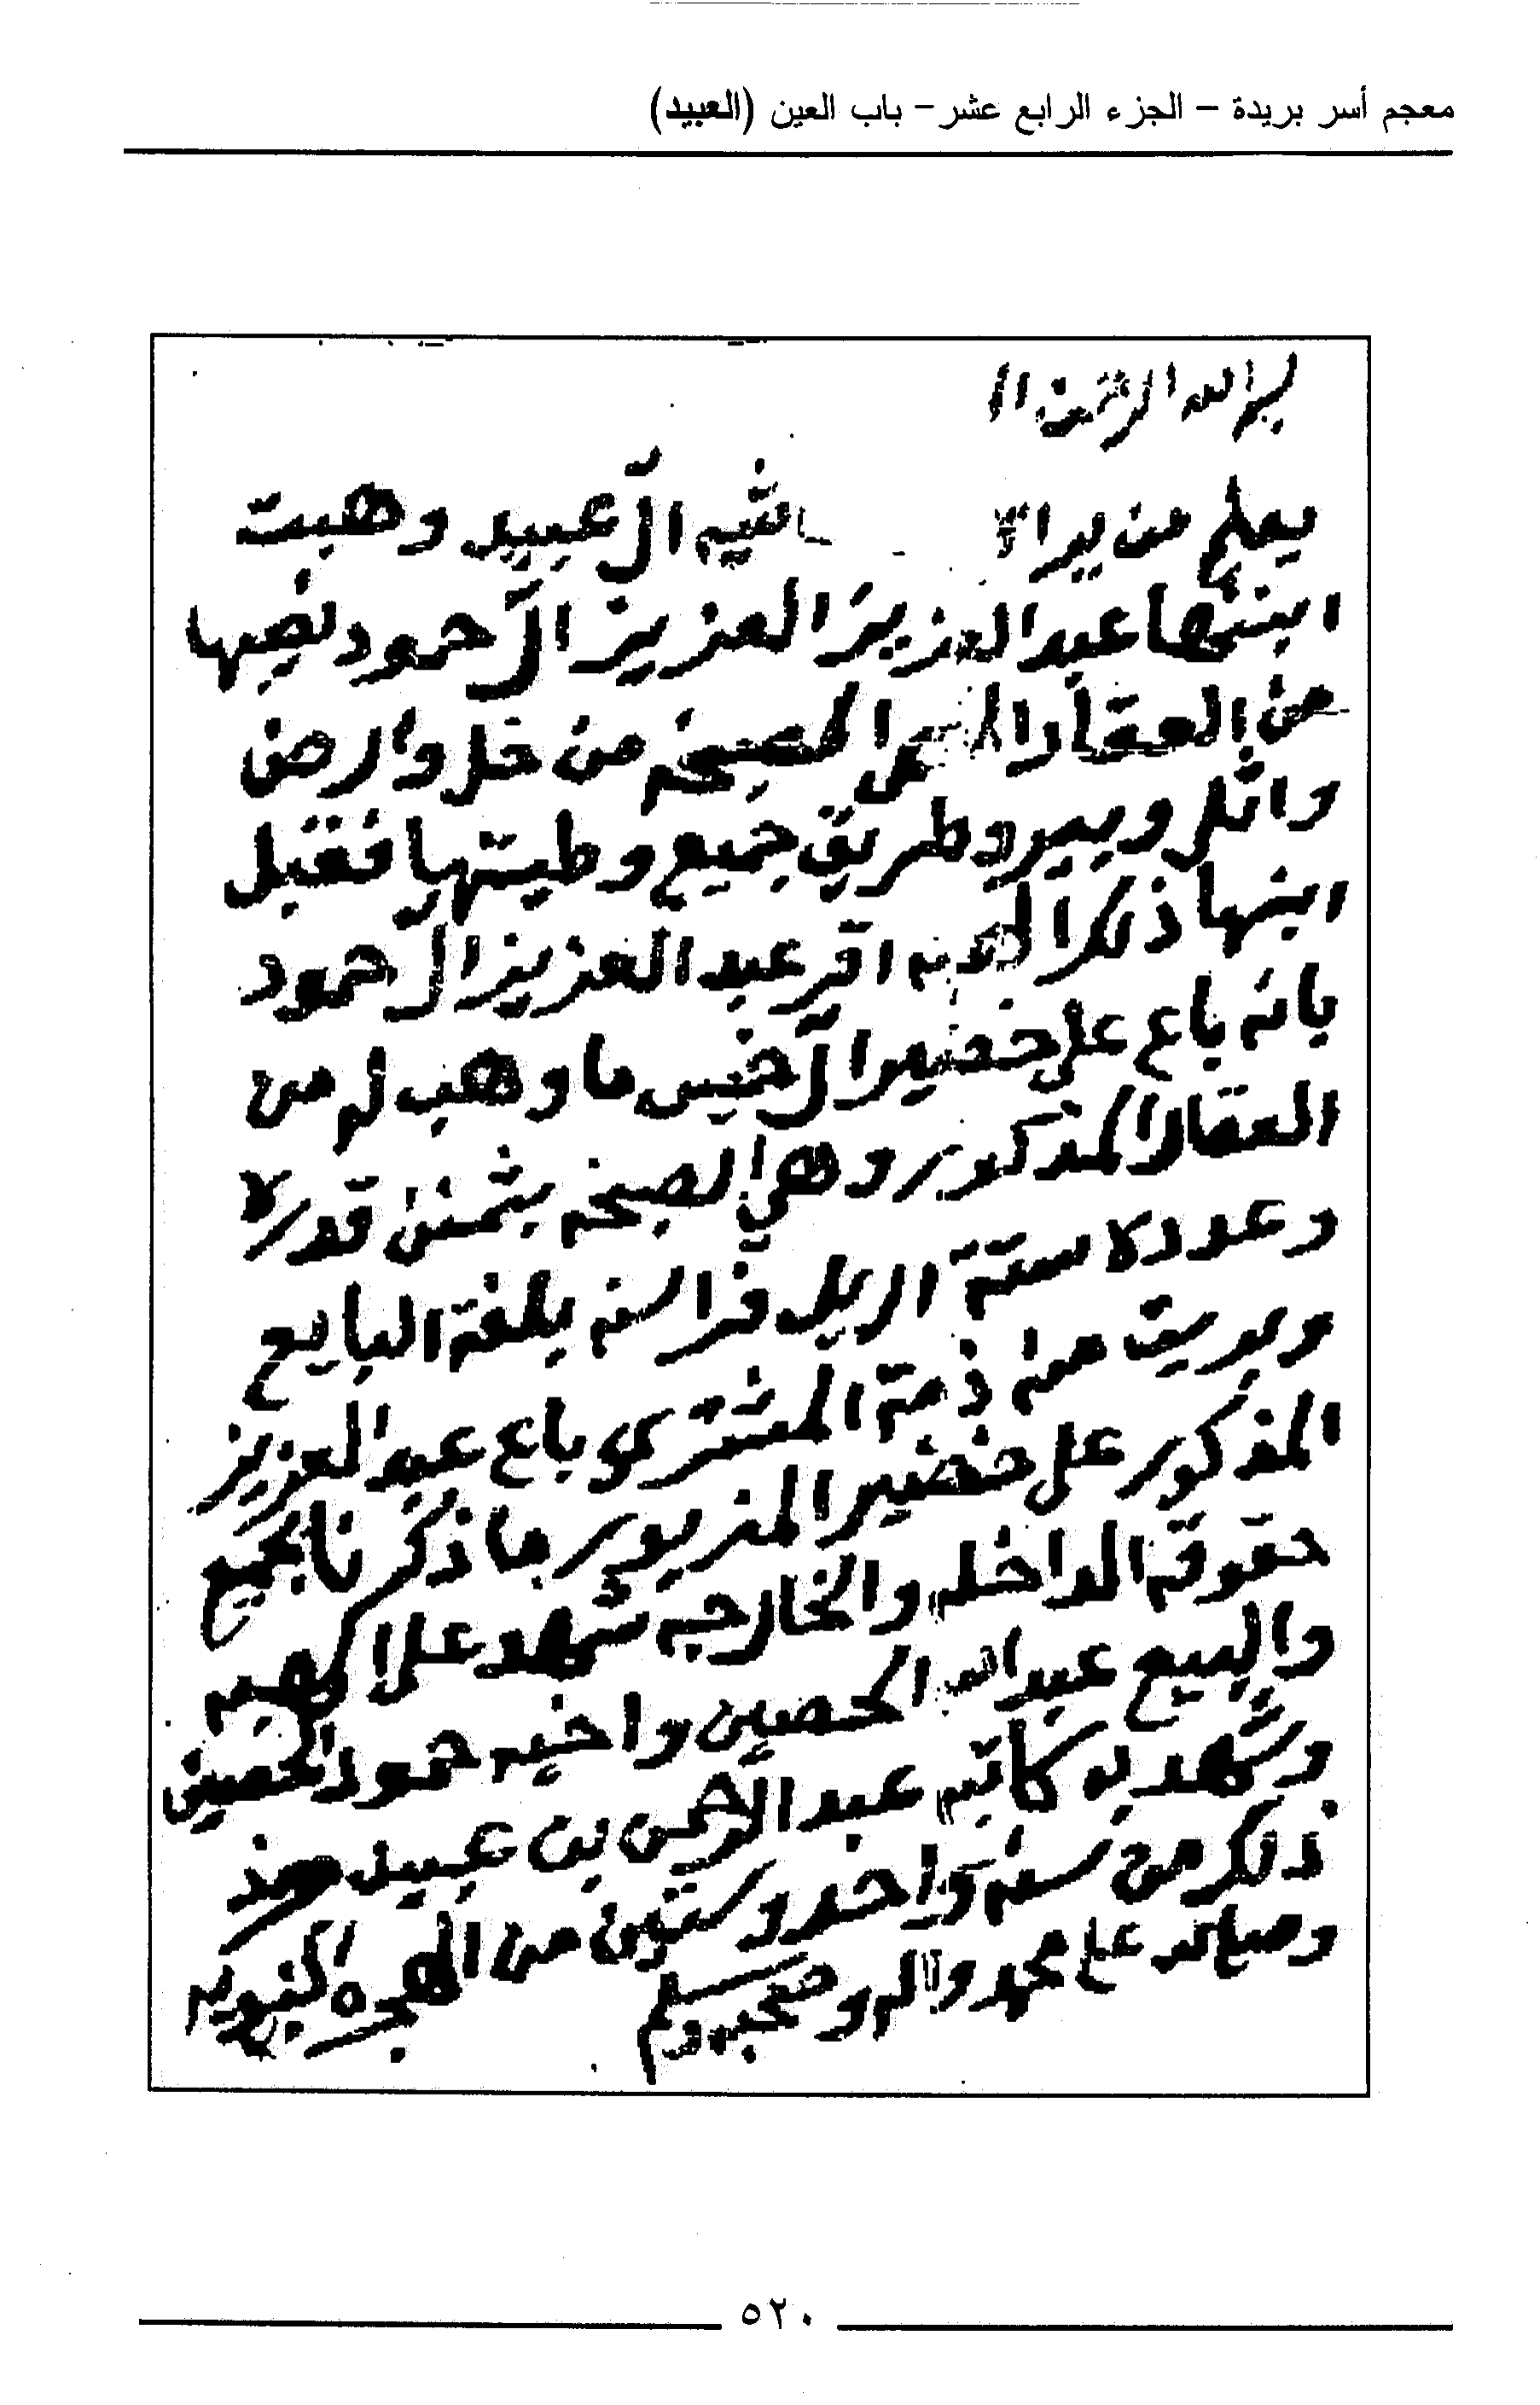 معجم أسر بريدة – الجزء الرابع عشر – باب العين (العبيد)
بسم الله الرحمن ال
يعلم من يراه آل عبيد وهبت
ابنها عبد العزيز العزيز آل حمود نصيبها
من العقار المسمى الصبخه من نخل وارض
واثل وبير وطريق جميع وطيتها فقبل
ابنها ذلك اقر عبد العزيز آل حمود
بانه باع على خضير آل خنيس ما وهب له من
العقار المذكور وهي الصبخه بثمن قدره
وعدده ستة اريل فرانسه بلغة البايع
وبريت منه ذمة المشتري باع عبد العزيز
المذكور على خضير المزبور ما ذكرنا بجميع
حقوقه الداخله والخارجه شهد على الهبه
والبيع عبد الله الحصين واخيه حمود الحصين
وشهد به كاتبه عبد الرحمن بن عبيد
ذلك من سنة واحد وستين من الهجره النبويه
وصلى الله على محمد واله وصحبه وسلم
٥٢٠